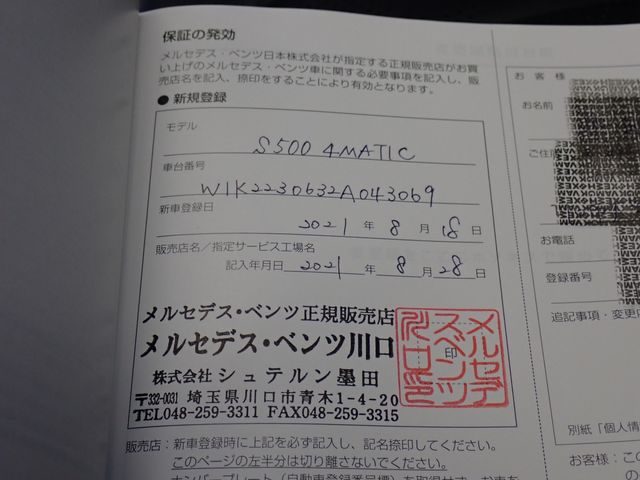 保証の発効
メルセデス・ベンツ日本株式会社が指定する正規販売店がお買
い上げのメルセデス・ベンツ車に関する必要事項を記入し、販
売店名を記入、捺印をすることにより有効となります。
● 新規登録
モデル
S500 4MATIC
車台番号
W1K2230632A043069
新車登録日
2021 年 8 月 18 日
販売店名／指定サービス工場名
記入年月日 2021 年 8 月 28 日
メルセデス・ベンツ正規販売店
メルセデス・ベンツ川口
株式会社 シュテルン墨田
〒332-0031 埼玉県川口市青木1-4-20
TEL048-259-3311 FAX048-259-3315
メルセデ
スベンツ
川口
印
販売店：新車登録時に上記を必ず記入し、記名捺印してください。
このページの左半分は切り離さないでください。
ナンバープレート（自動車登録番号標）を取得せず、お車を
お客様
お名前
ご住所
お電話
登録番号
追記事項・変更
別紙「個人情
お客様：この